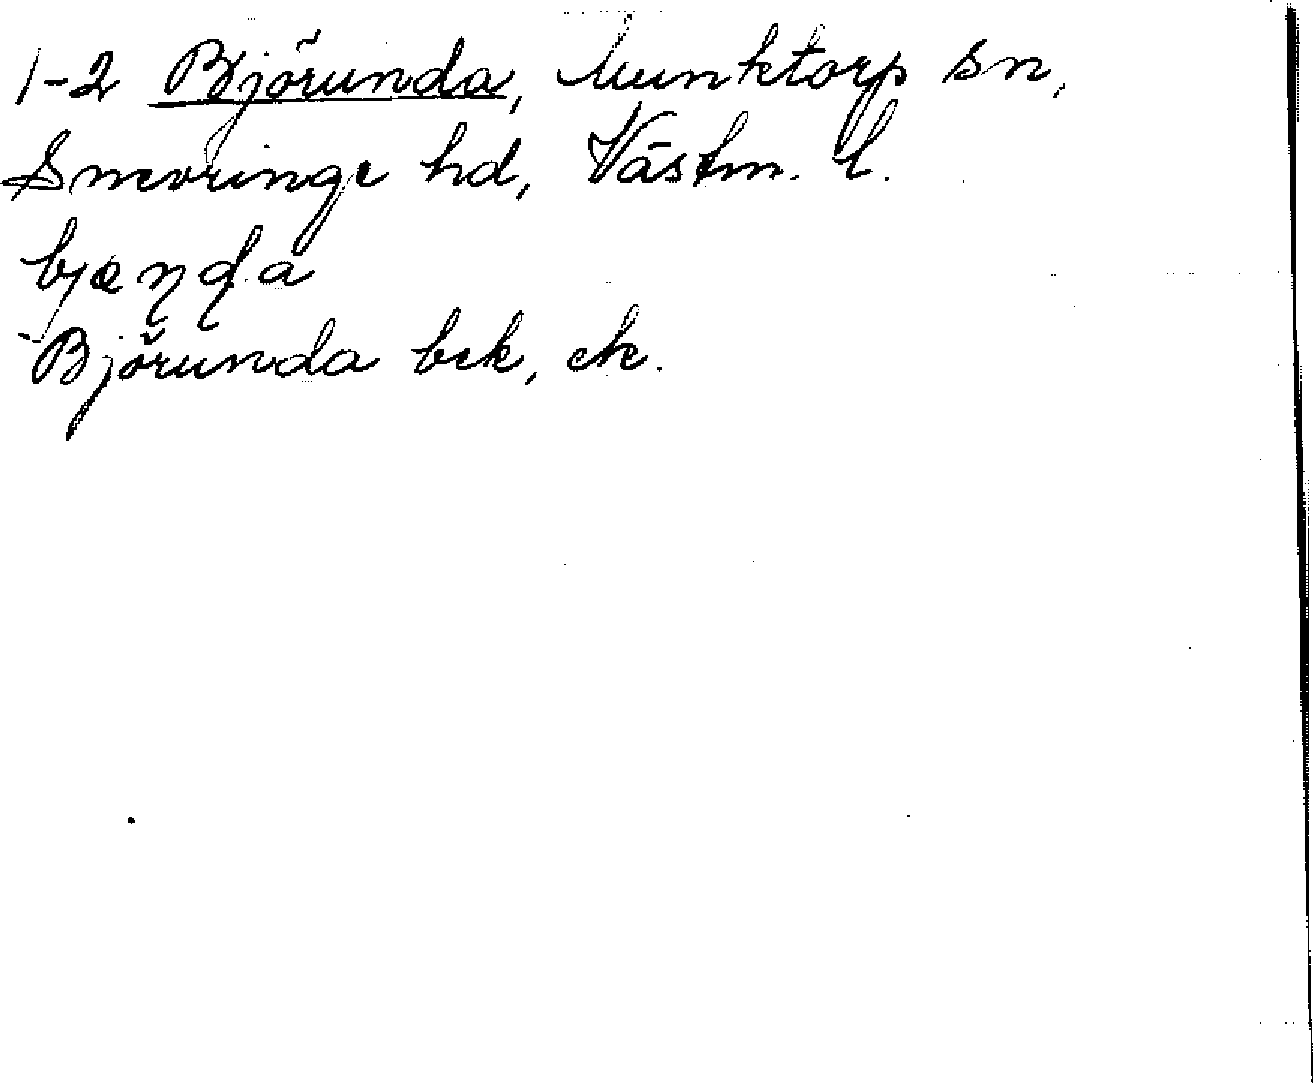 1-2 Björunda, Munktorp sn,
Snevringe hd, Västm. l.
bjæɳɖa
Björunda bek, ek.